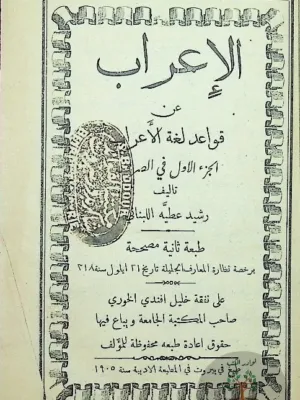 الإعراب
عن
قواعد لغة الأعرا
الجزء الاول في الصر
تأليف
رشيد عطيه اللبنا
طبعة ثانية مصححة
برخصة نظارة المعارف الجليلة تاريخ ٢١ ايلول سنة ٣١٨
على نفقة خليل افندي الخوري
صاحب المكتبة الجامعة ويباع فيها
حقوق اعادة طبعه محفوظة للمؤلف
في بيروت في المطبعة الادبية سنة ١٩٠٥